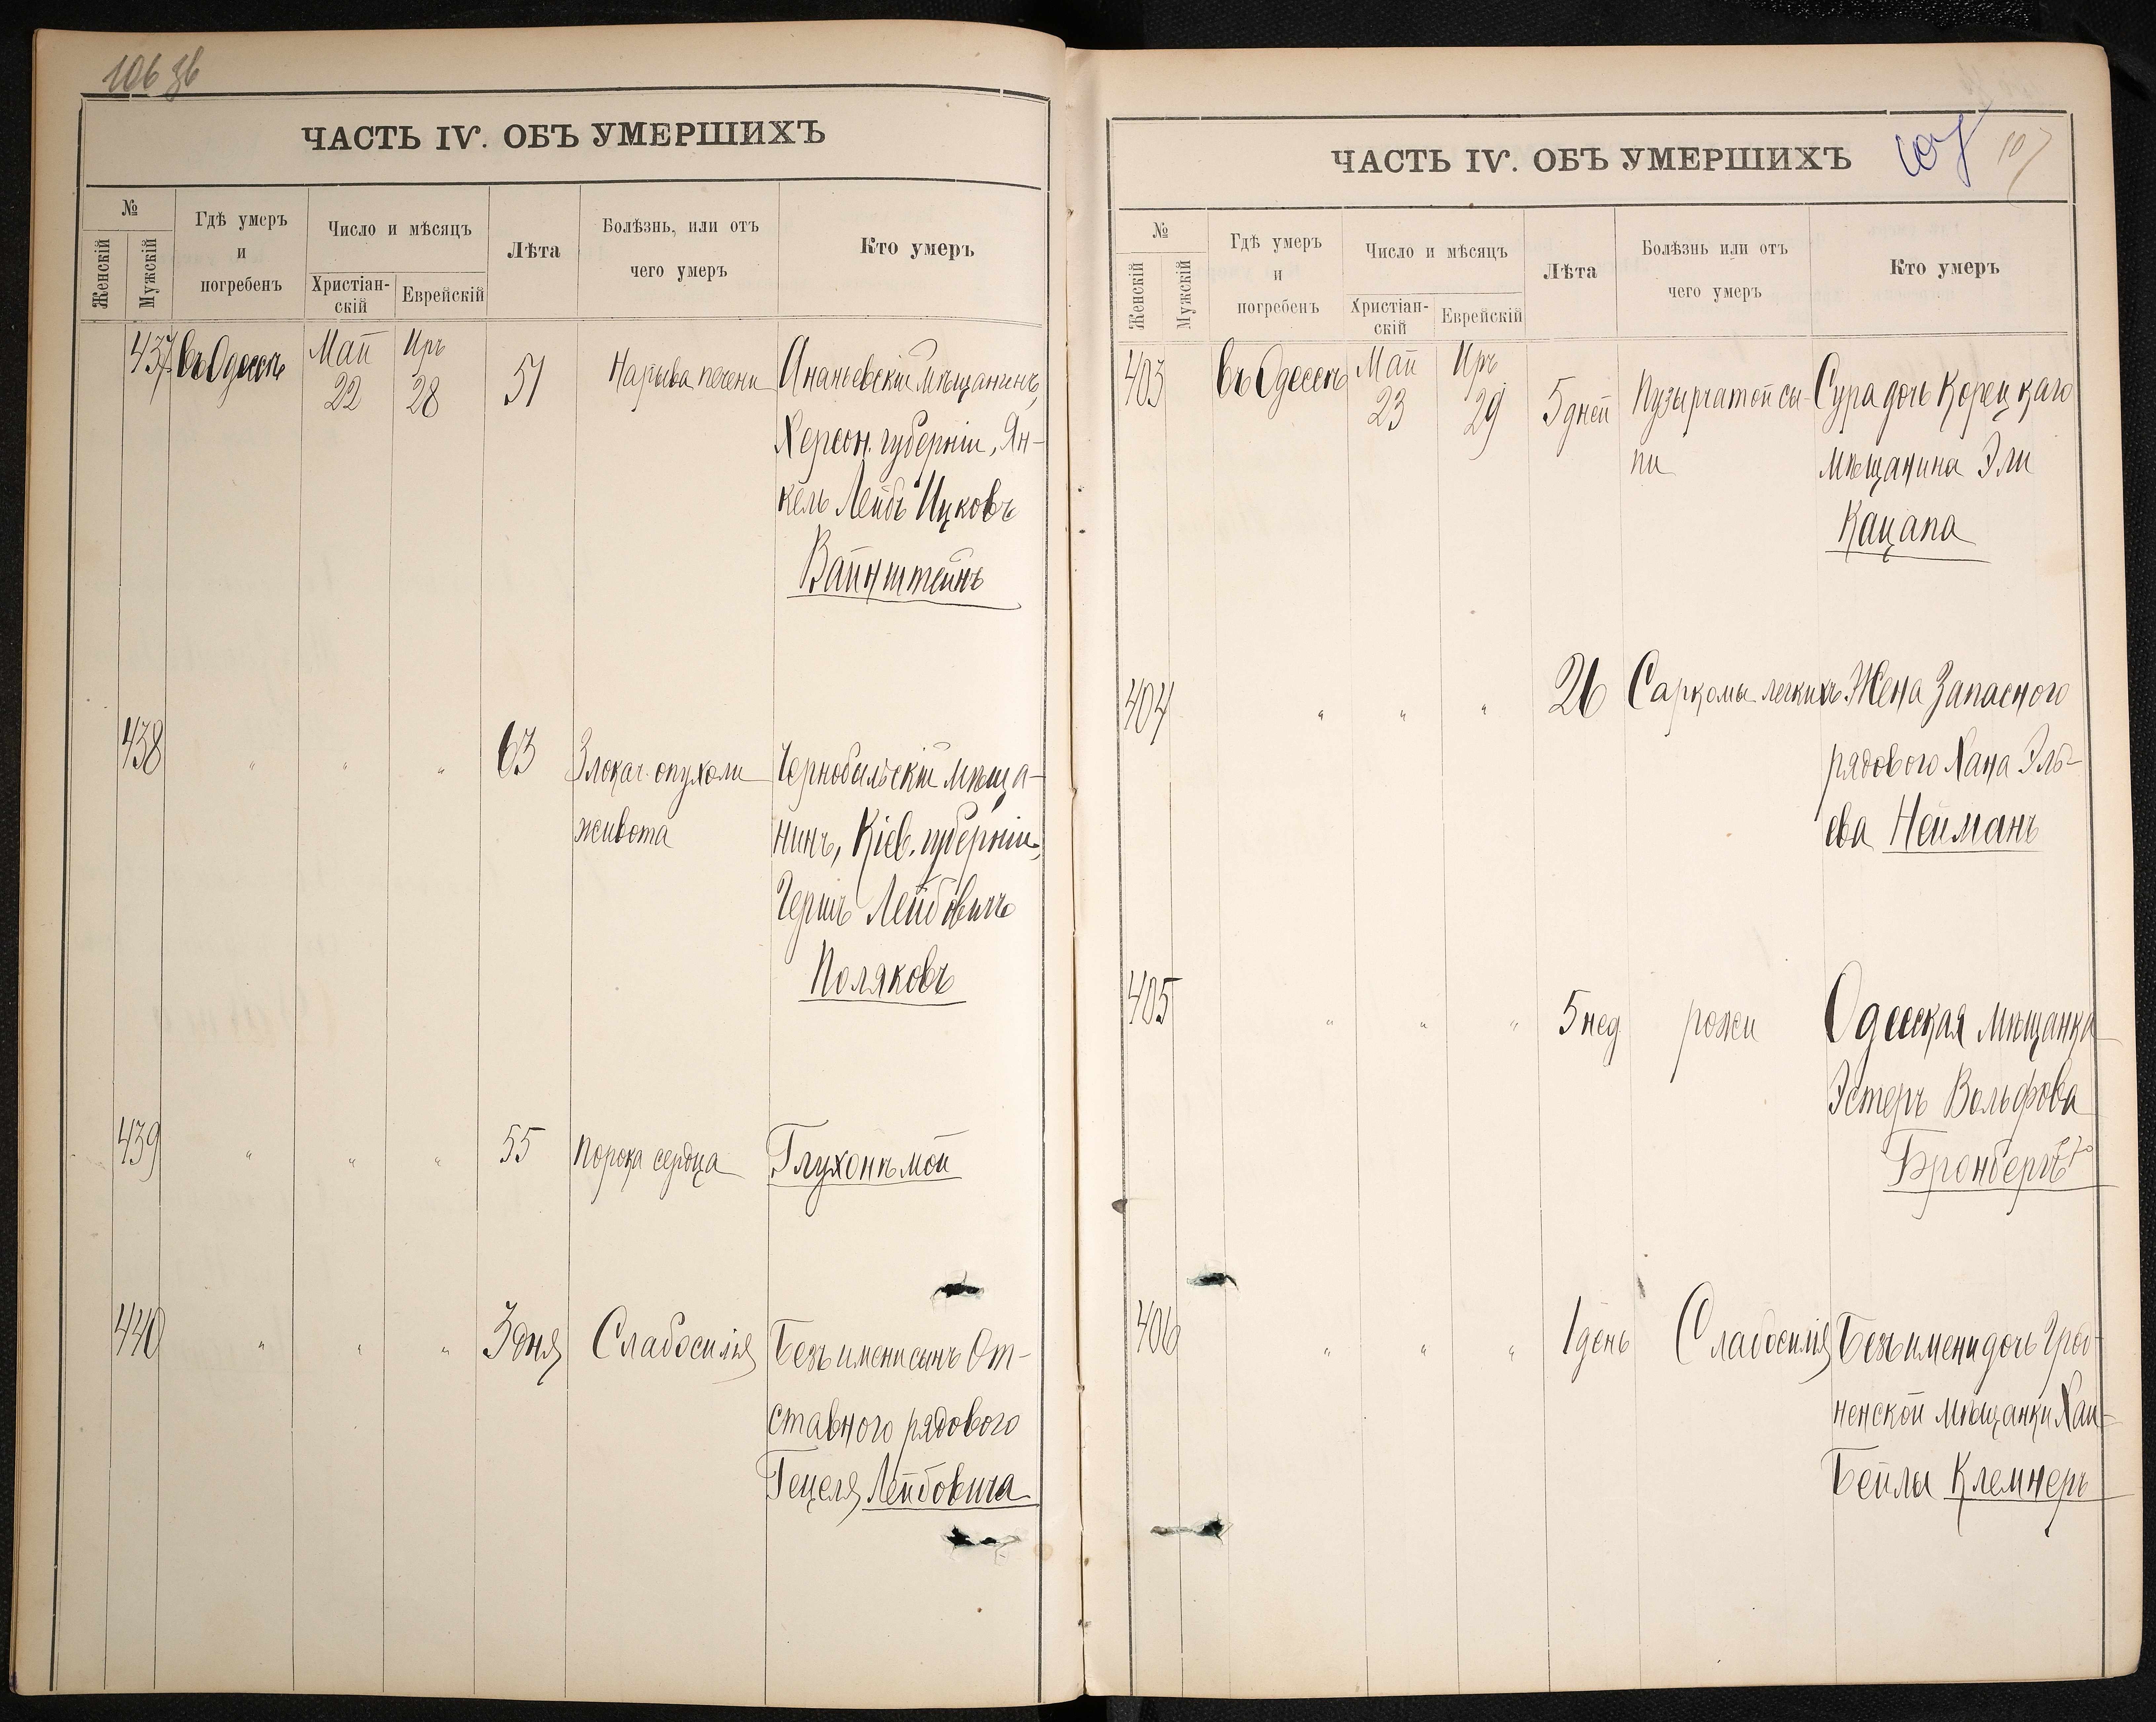 106 зв
ЧАСТЬ IV. ОБЪ УМЕРШИХЪ
№
Женскій
Мужскій
Гдѣ умеръ
и
погребенъ
Число и мѣсяцъ
Христіан-
скій
Еврейскій
Лѣта
Болѣзнь, или отъ
чего умеръ
Кто умеръ
437 въ Одессѣ Май 22 Иръ 28 51 Нарыва печени Ананьевскій мѣщанинъ,
Херсон. губерніи, Ян-
кель Лейбъ Ицковъ
Вайнштейнъ
438 " " " 63 Злокач. опухоли Чернобыльскій мѣща-
живота нинъ, Кіев. губерніи,
Гершъ Лейбовичъ
Поляковъ
439 " " " 55 Порока сердца Глухонѣмой
440 " " " 3 дня Слабосилія Безъ имени сынъ От-
ставного рядового
Гецеля Лейбовича
ЧАСТЬ IV. ОБЪ УМЕРШИХЪ
107 107
№
Женскій
Мужскій
Гдѣ умеръ
и
погребенъ
Число и мѣсяцъ
Христіан-
скій
Еврейскій
Лѣта
Болѣзнь или отъ
чего умеръ
Кто умеръ
403 въ Одессѣ Май 23 Иръ 29 5 дней Пузырчатой сы- Сура дочь Корецкаго
пи мѣщанина Эли
Кацапа
404 " " " 26 Саркомы легкихъ Жена Запасного
рядового Хана Эль-
ева Нейманъ
405 " " " 5 нед рожи Одесская мѣщанка
Эстеръ Вольфова
Бронбергъ
406 " " " 1 день Слабосилія Безъ имени дочь Грод-
ненской мѣщанки Хаи-
Бейлы Клемнеръ